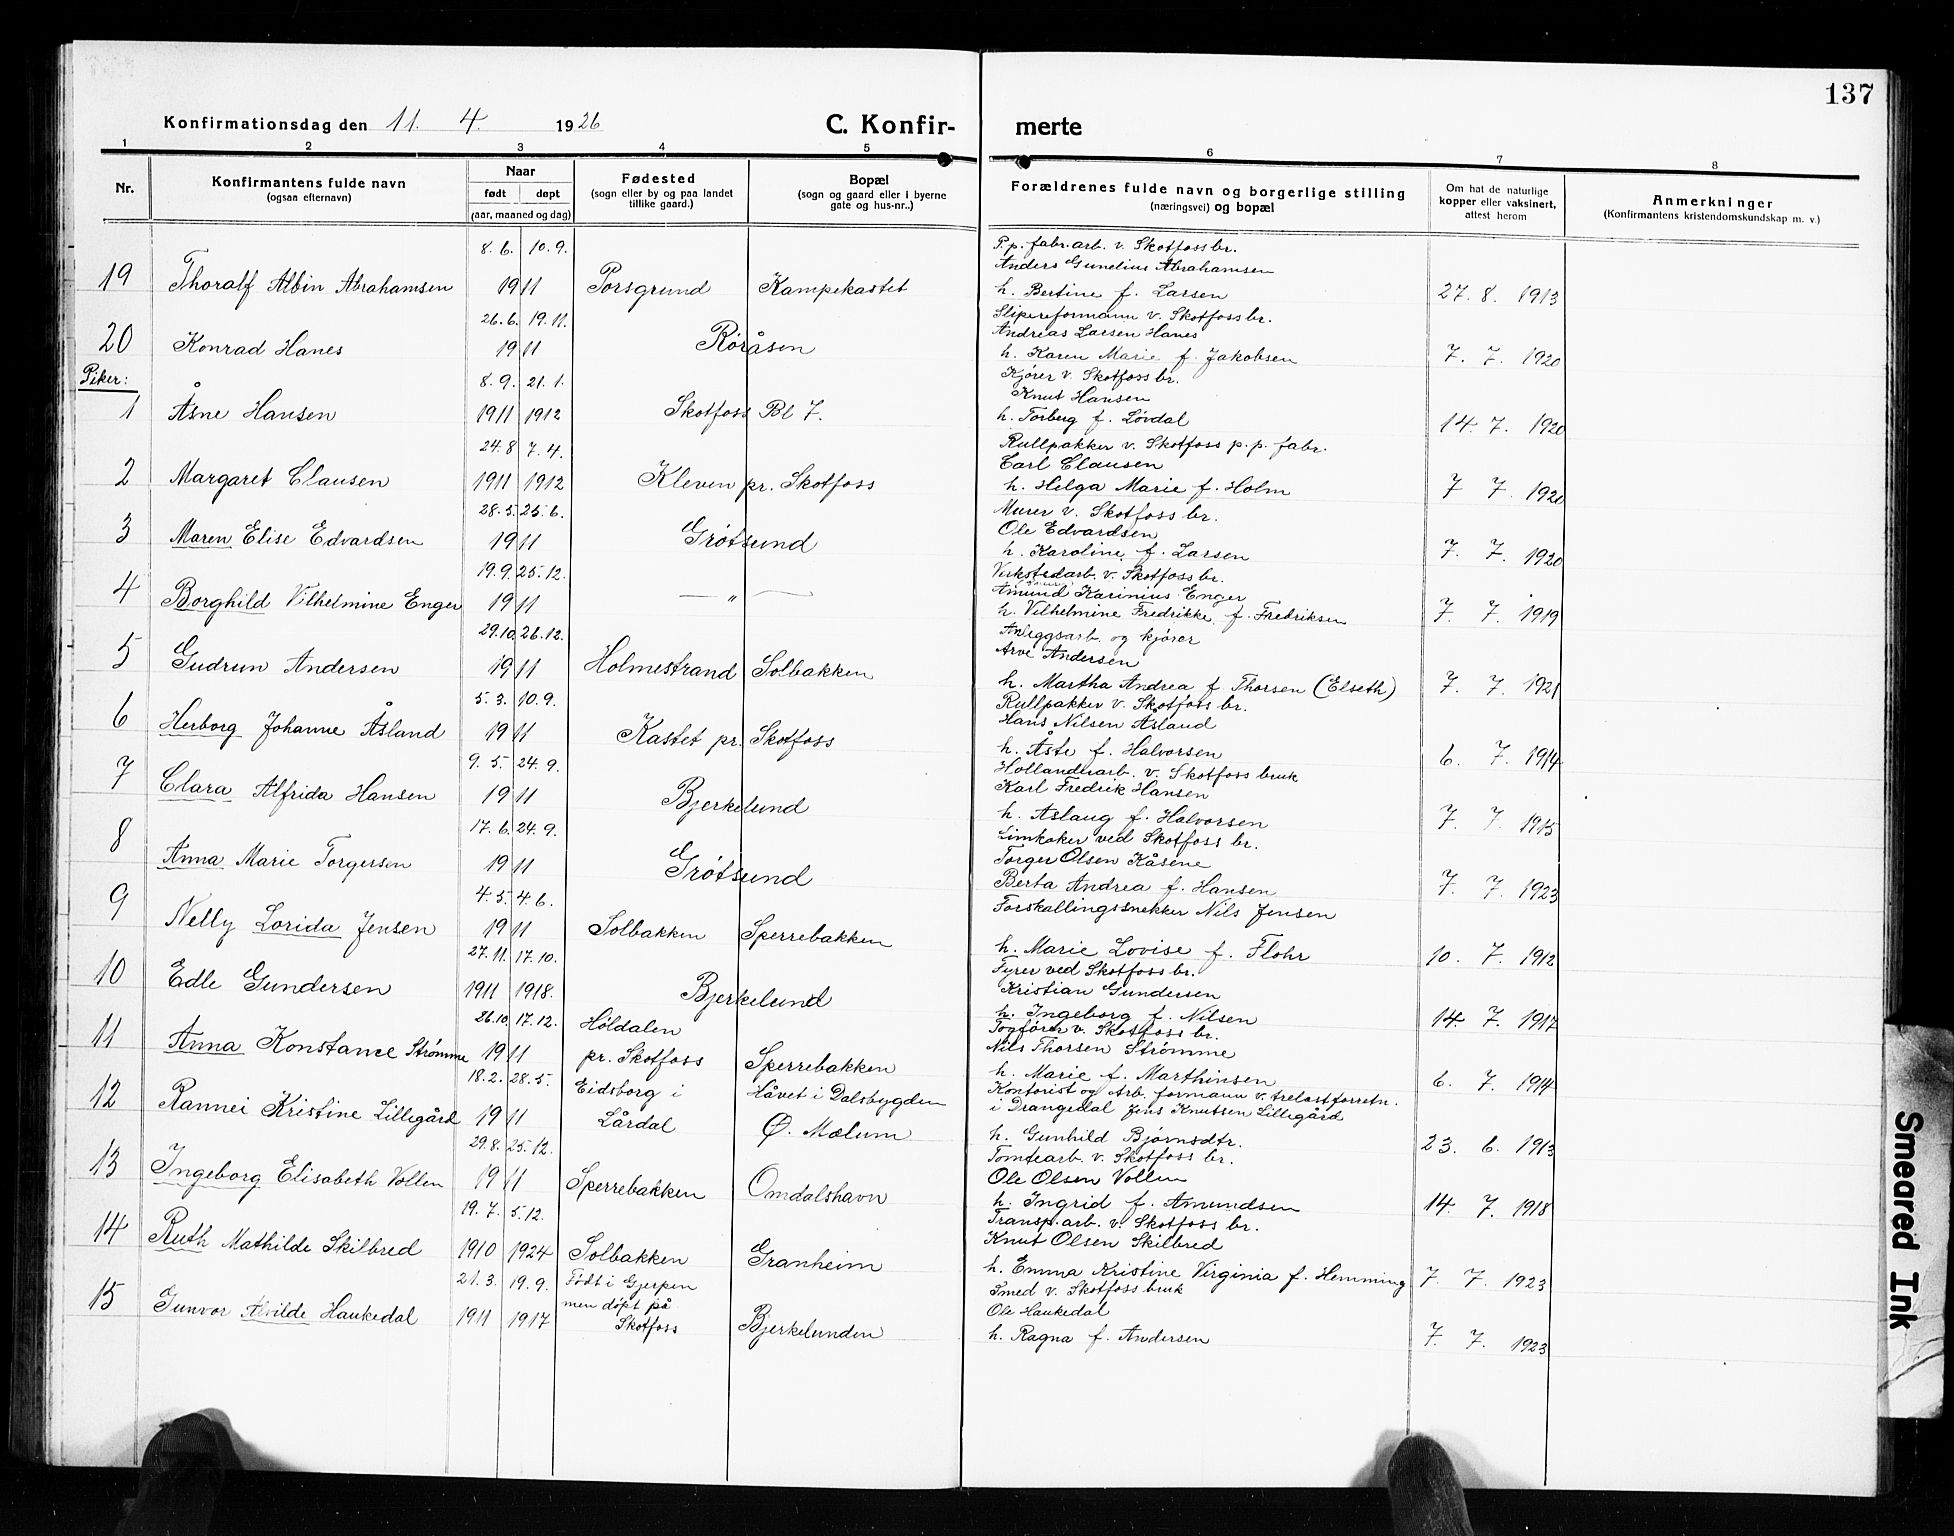 137
Konfirmationsdag den 11. 4. 1926
C. Konfir- merte
1 2 3 4 5 6 7 8
Nr.
Konfirmantens fulde navn
(ogsaa efternavn)
Naar
født døpt
(aar, maaned og dag)
Fødested
(sogn eller by og paa landet
tillike gaard.)
Bopæl
(sogn og gaard eller i byerne
gate og hus-nr..)
Forældrenes fulde navn og borgerlige stilling
(næringsvei) og bopæl
Om hat de naturlige
kopper eller vaksinert,
attest herom
Anmerkninger
(Konfirmantens kristendomskundskap m. v.)
8. 6. 10. 9. P.p. fabr. arb. v. Skotfoss br.
Anders Gunelius Abrahamsen
19 Thoralf Albin Abrahamsen 1911 Porsgrund Kampekastet h. Bertine f. Larsen 27. 8. 1913
26. 6. 19. 11. Slipereformann v. Skotfoss br.
Andreas Larsen Hanes
20 Konrad Hanes 1911 Röråsen h. Karen Marie f. Jakobsen 7. 7. 1920
Piker: 8. 9. 21. 1. Kjörer v. Skotfoss br.
Knut Hansen
1 Åsne Hansen 1911 1912 Skotfoss Bl 7. h. Torberg f. Lövdal 14. 7. 1920
24. 8 7. 4. Rullpakker v. Skotfoss p. p. fabr.
Carl Clausen
2 Margaret Clausen 1911 1912 Kleven pr. Skotfoss h. Helga Marie f. Holm 7 7. 1920
28. 5. 25. 6. Murer v. Skotfoss br.
Ole Edvardsen
3 Maren Elise Edvardsen 1911 Grötsund h. Karoline f. Larsen 7. 7. 1920
19. 9. 25. 12. Verkstedarb. v. Skotfoss br.
Amund Karinius Enger
4 Borghild Vilhelmine Enger 1911 — " — h. Vilhelmine Fredrikke f. Fredriksen 7. 7. 1919
29. 10. 26. 12. Anleggsarb. og kjörer
Arve Andersen
5 Gudrun Andersen 1911 Holmestrand Solbakken h. Martha Andrea f. Thorsen (Elseth) 7. 7. 1921
5. 3. 10. 9. Rullpakker v. Skotfoss br.
Hans Nilsen Åsland
6 Herborg Johanne Åsland 1911 Kastet pr. Skotfoss h. Åste f. Halvorsen 6. 7. 1914
9. 5. 24. 9. Hollanderarb. v. Skotfoss bruk
Karl Fredrik Hansen
7 Clara Alfrida Hansen 1911 Bjerkelund h. Aslaug f. Halvorsen 7. 7. 1915
17. 6. 24. 9. Limkoker ved Skotfoss br.
Torger Olsen Kåsene
8 Anna Marie Torgersen 1911 Grötsund Berta Andrea f. Hansen 7. 7. 1923
4. 5. 4. 6. Forskallingssnekker Nils Jensen
9 Nelly Lorida Jensen 1911 Solbakken Sperrebakken h. Marie Lovise f. Flohr 10. 7. 1912
27. 11. 17. 10. Fyrer ved Skotfoss br.
Kristian Gundersen
10 Edle Gundersen 1911 1918. Bjerkelund h. Ingeborg f. Nilsen 14. 7. 1917
26. 10. 17. 12. Höldalen Togförer v. Skotfoss br.
Nils Thorsen Strömme
11 Anna Konstance Strömme 1911 pr. Skotfoss Sperrebakken h. Marie f. Marthinsen 6. 7. 1914
18. 2. 28. 5. Eidsborg i Håvet i Dalsbygden Kontorist og Arb. formann v. trelastforretn.
i Drangedal Jens Knutsen Lillegård
12 Rannei Kristine Lillegård 1911 Lårdal Ø. Mælum h. Gunhild Björnsdtr. 23. 6. 1913
29. 8. 25. 12. Tomtearb. v. Skotfoss br.
Ole Olsen Vollen
13 Ingeborg Elisabeth Vollen 1911 Sperrebakken Omdalshavn h. Ingrid f. Amundsen 14. 7. 1918
19. 7. 5. 12. Transp. arb. v. Skotfoss br.
Knut Olsen Skilbred
14 Ruth Mathilde Skilbred 1910 1924 Solbakken Granheim h. Emma Kristine Virginia f. Hemming 7. 7. 1923
21. 3. 19. 9. Födt i Gjerpen Smed v. Skotfoss bruk
men döpt på Ole Haukedal
15 Gunvor Alvilde Haukedal 1911 1917 Skotfoss Bjerkelunden h. Ragna f. Andersen 7. 7. 1923
Smeared Ink